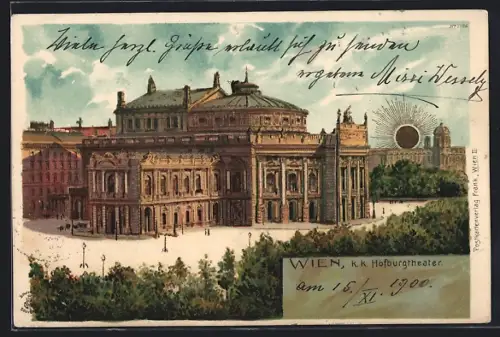 Viele herzl. Grüße erlaubt sich zu senden
ergebene Mizzi Wessely
WIEN, k.k. Hofburgtheater.
am 15./XI. 1900.
Postkartenverlag Frank, Wien II